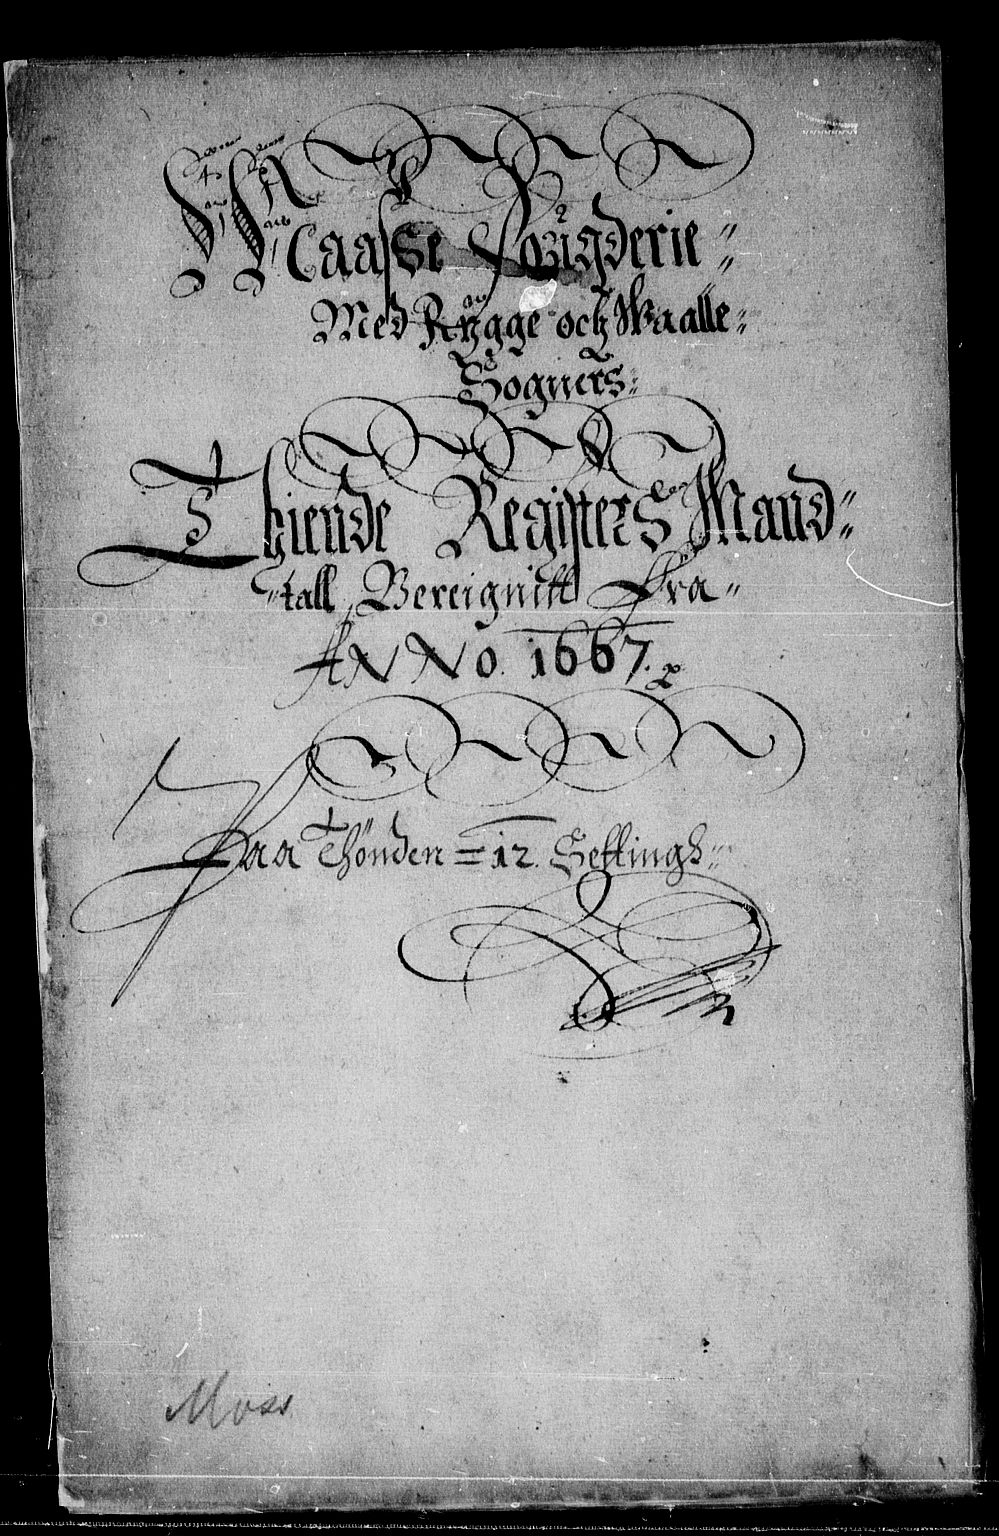 Maasse Fougderie
Med Rÿgge och Waalle
Sogners
Thiende Registers Mand-
tall, Bereignitt Fra
ANNO. 1667.
Paa Thönden = 12. Settingh
Moss